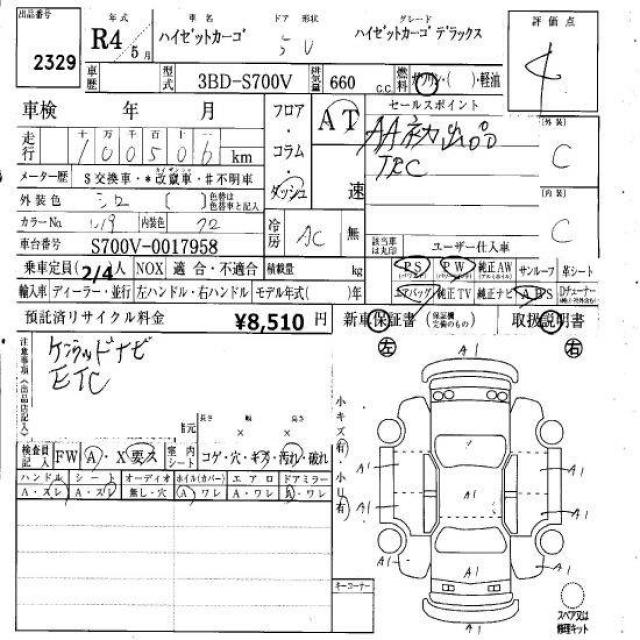 出品番号 年式 車名 ドア 形状 グレード 評価点
2329 R4 5月 ハイゼットカーゴ 5 V ハイゼットカーゴ デラックス 4
車歴 型式 3BD-S700V 排気量 660 c.c. 燃料 ガソリン・( )・軽油
車検 年 月 フロア・コラム・ダッシュ AT 速 セールスポイント
走行 十 万 千 百 十 一 AA初出品 [外装]
100506 km TRC C
メーター歴 $ 交換車・* 改竄車・# 不明車 [内装]
外装色 シロ [ ] 色替は色替車と記入 C
カラーNo. 内装色 冷房 AC 無
車台番号 S700V-0017958 該当車は丸印 ユーザー仕入車
乗車定員 2/4 人 NOX 適合・不適合 積載量 kg PS PW 純正AW サンルーフ 革シート
輸入車 ディーラー・並行 左ハンドル・右ハンドル モデル年式( )年 エアバッグ 純正TV 純正ナビ ABS Dチューナー
預託済リサイクル料金 ¥8,510 円 新車保証書 (保証欄完備のもの) 取扱説明書
注意事項(出品店記入) ケンウッドナビ
ETC
左 A1 右
小キズ有・小U有
諸元 長さ × 幅 × 高さ
検査員記入 FW A・X 要ス 室内シート コゲ・穴・キズ・汚れ・破れ
ハンドル シート オーディオ ホイル(カバー) エアロ ドアミラー
A・スレ A・スレ 無し・穴 A ワレ A・ワレ A・ワレ
A1 A1 A1 A1
A1
A1 A1
A1 A1
キーコーナー
A1
スペア又は修理キット